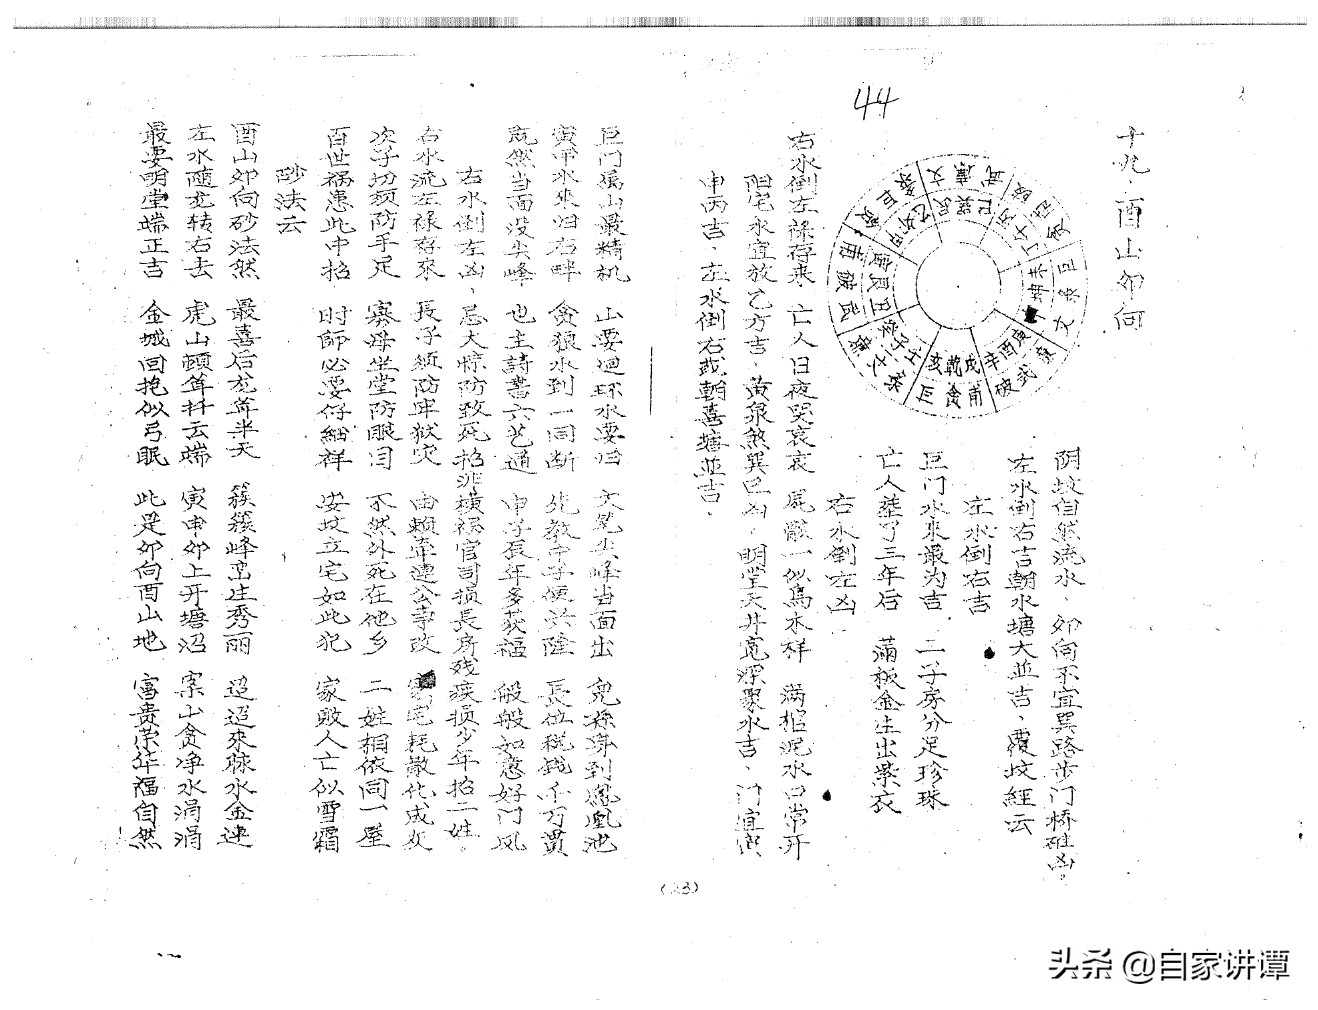 44
十九．酉山卯向
阴坟自然流水、卯向不宜巽路步门桥碓凶。
左水倒右吉朝水塘大並吉、覆坟經云
左水倒右吉
巨门水來最为吉 二子房分足珍珠
亡人葬了三年后 滿板金生出紫衣
右水倒左凶
右水倒左禄存来 亡人日夜哭哀哀 屍骸一似鳥木样 满棺泥水口常开
阳宅水宜放乙方吉．黄泉煞巽巳凶．明堂天井宽深聚水吉．门宜寅
申丙吉．左水倒右或朝喜塘並吉．
巨门属山最精机 山要迴环水要归 文笔尖峰当面出 兒孫身到鳳凰池
寅甲水來归右畔 貪狼水到一同断 先教中子便兴隆 長位税銭千万貫
既然当面没尖峰 也主詩書六艺通 申子辰年多获福 般般如意好门风
右水倒左凶．忌大惊防致死招非横祸官司损長房残疾损少年招二姓．
右水流左禄存來 長子须防牢獄灾 由賴牵連公事改 宅耗散化成灰
次子切须防手足 寡母坐堂防眼目 不然外死在他乡 二姓相依同一屋
百世祸患此中招 时師必要仔細祥 安坟立宅如此犯 家败人亡似雪霜
砂法云
酉山卯向砂法然 最喜后龙耸半天 簇簇峰峦生秀丽 迢迢來脉水金連
左水随龙转右去 虎山頓耸扦云端 寅申卯上开塘沼 案山贪净水涓涓
最要明堂端正吉 金城回抱似弓眠 此是卯向酉山地 富贵荣华福自然
(23)
头条 @自家讲谭